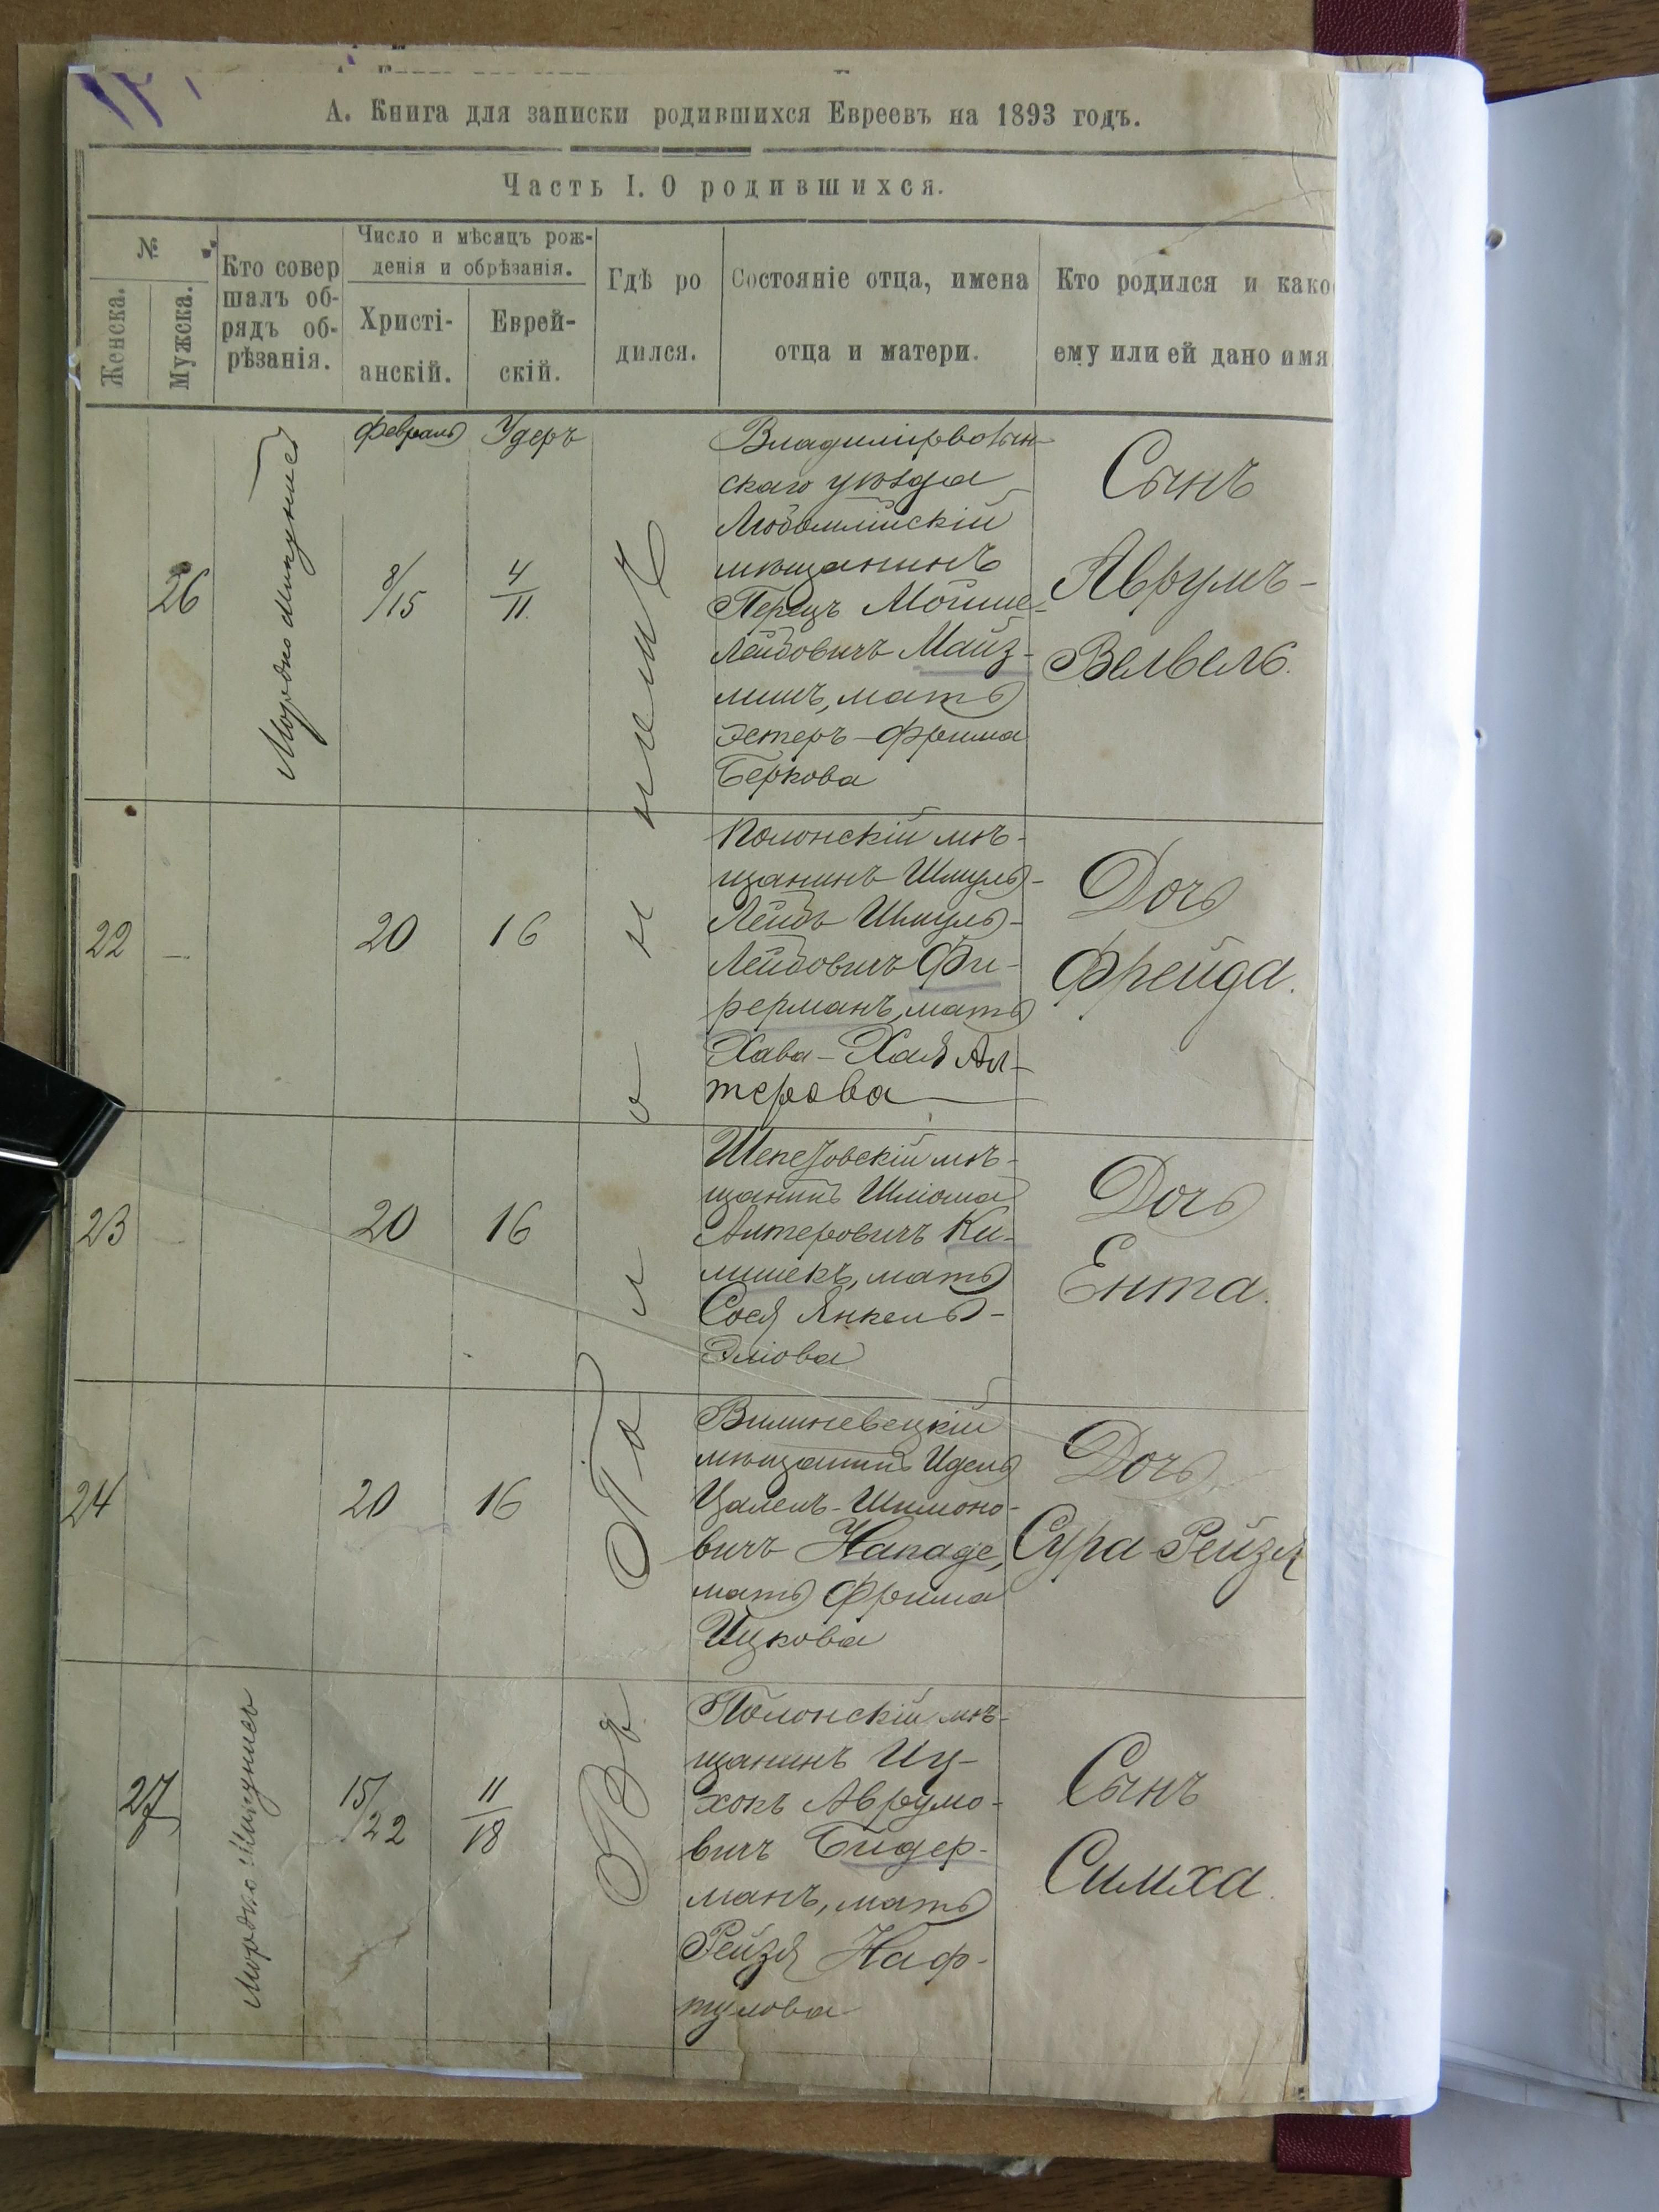 А. Книга для записки родившихся Евреевъ на 1893 годъ.
Часть I. О родившихся.
№
Женска.
Мужска.
Кто совер
шалъ об-
рядъ об-
рѣзанія.
Число и мѣсяцъ рож-
денія и обрѣзанія.
Христі-
анскій.
Еврей-
скій.
Гдѣ ро
дился.
Состояніе отца, имена
отца и матери.
Кто родился и како
ему или ей дано имя
Въ Полонномъ
26
Мордко
Февраль
8/15
Удеръ
4/11
Владимірволын-
скаго уѣзда
Любомлійскій
мѣщанинъ
Перецъ Мойше-
Лейбовичъ Майз-
лишъ, мать
Эстеръ-Фрима
Беркова
Сынъ
Аврумъ-
Велвель.
22
—
20
16
Полонскій мѣ-
щанинъ Шмуль-
Лейбъ Шмуль-
Лейбовичъ Фи-
рерманъ, мать
Хава-Хая Ал-
терова
Дочь
Фрейда.
23
20
16
Шепетовскій мѣ-
щанинъ Шліома
Алтеровичъ Ки-
лишекъ, мать
Сося Янкель-
Эліова
Дочь
Ента.
24
20
16
Вишневецкій
мѣщанинъ Идель
Цалель-Шимоно-
вичъ Нападе,
мать Фрима
Ицкова
Дочь
Сура-Рейзя
27
Мордко
15/22
11/18
Полонскій мѣ-
щанинъ Иц-
хокъ Аврумо-
вичъ Бидер-
манъ, мать
Рейзя Наф-
тулова
Сынъ
Симха.